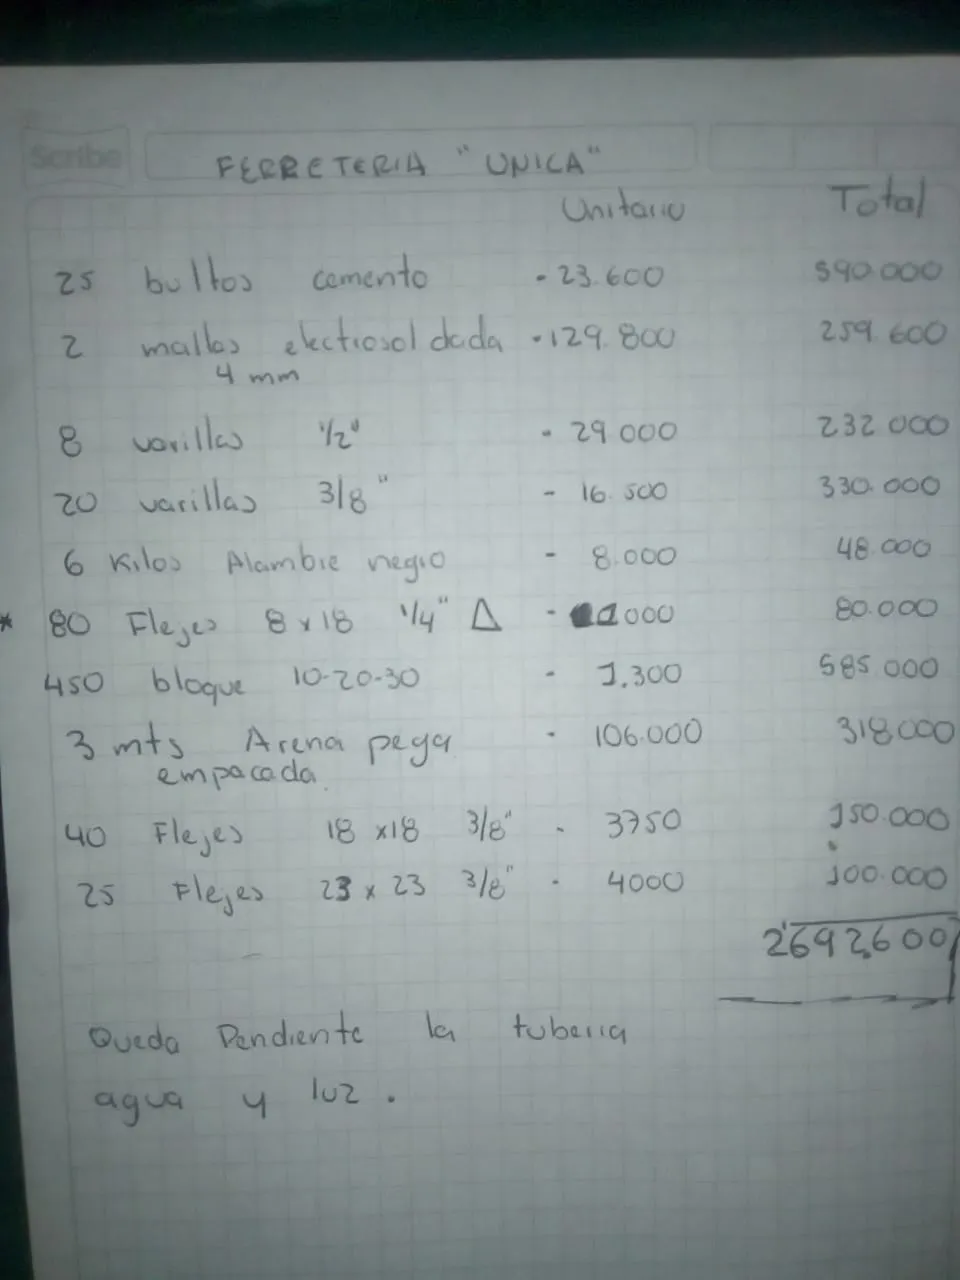 Scribe
FERRETERIA "UNICA"
Unitario Total
25 bultos cemento - 23.600 590.000
2 mallas electrosoldada - 129.800 259.600
4 mm
8 varillas 1/2" - 29 000 232 000
20 varillas 3/8" - 16.500 330.000
6 Kilos Alambre negro - 8.000 48.000
* 80 Flejes 8 x 18 1/4" Δ - 1000 80.000
450 bloque 10-20-30 - 1.300 585 000
3 mts Arena pega - 106.000 318000
empacada.
40 Flejes 18 x18 3/8" - 3750 150.000
25 Flejes 23 x 23 3/8" - 4000 100.000
2'692,600
Queda Pendiente la tuberia
agua y luz .